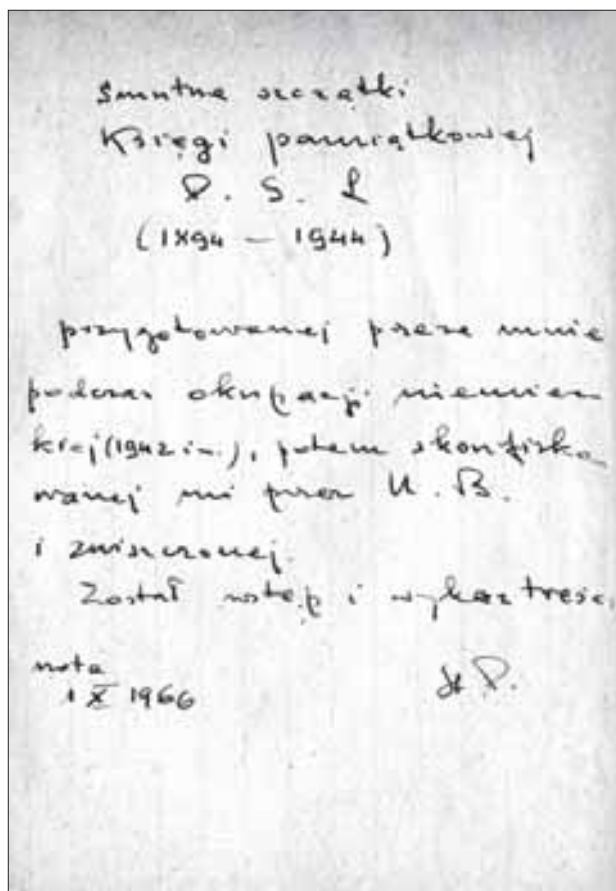 Smutne szczątki
Księgi pamiątkowej
P. S. L
(1894 — 1944)
przygotowanej przeze mnie
podczas okupacji niemiec
kiej (1942 i n.), potem skonfisko
wanej mi przez U. B.
i zniszczonej.
Został wstęp i wykaz treści.
nota
1 X 1966
St P.